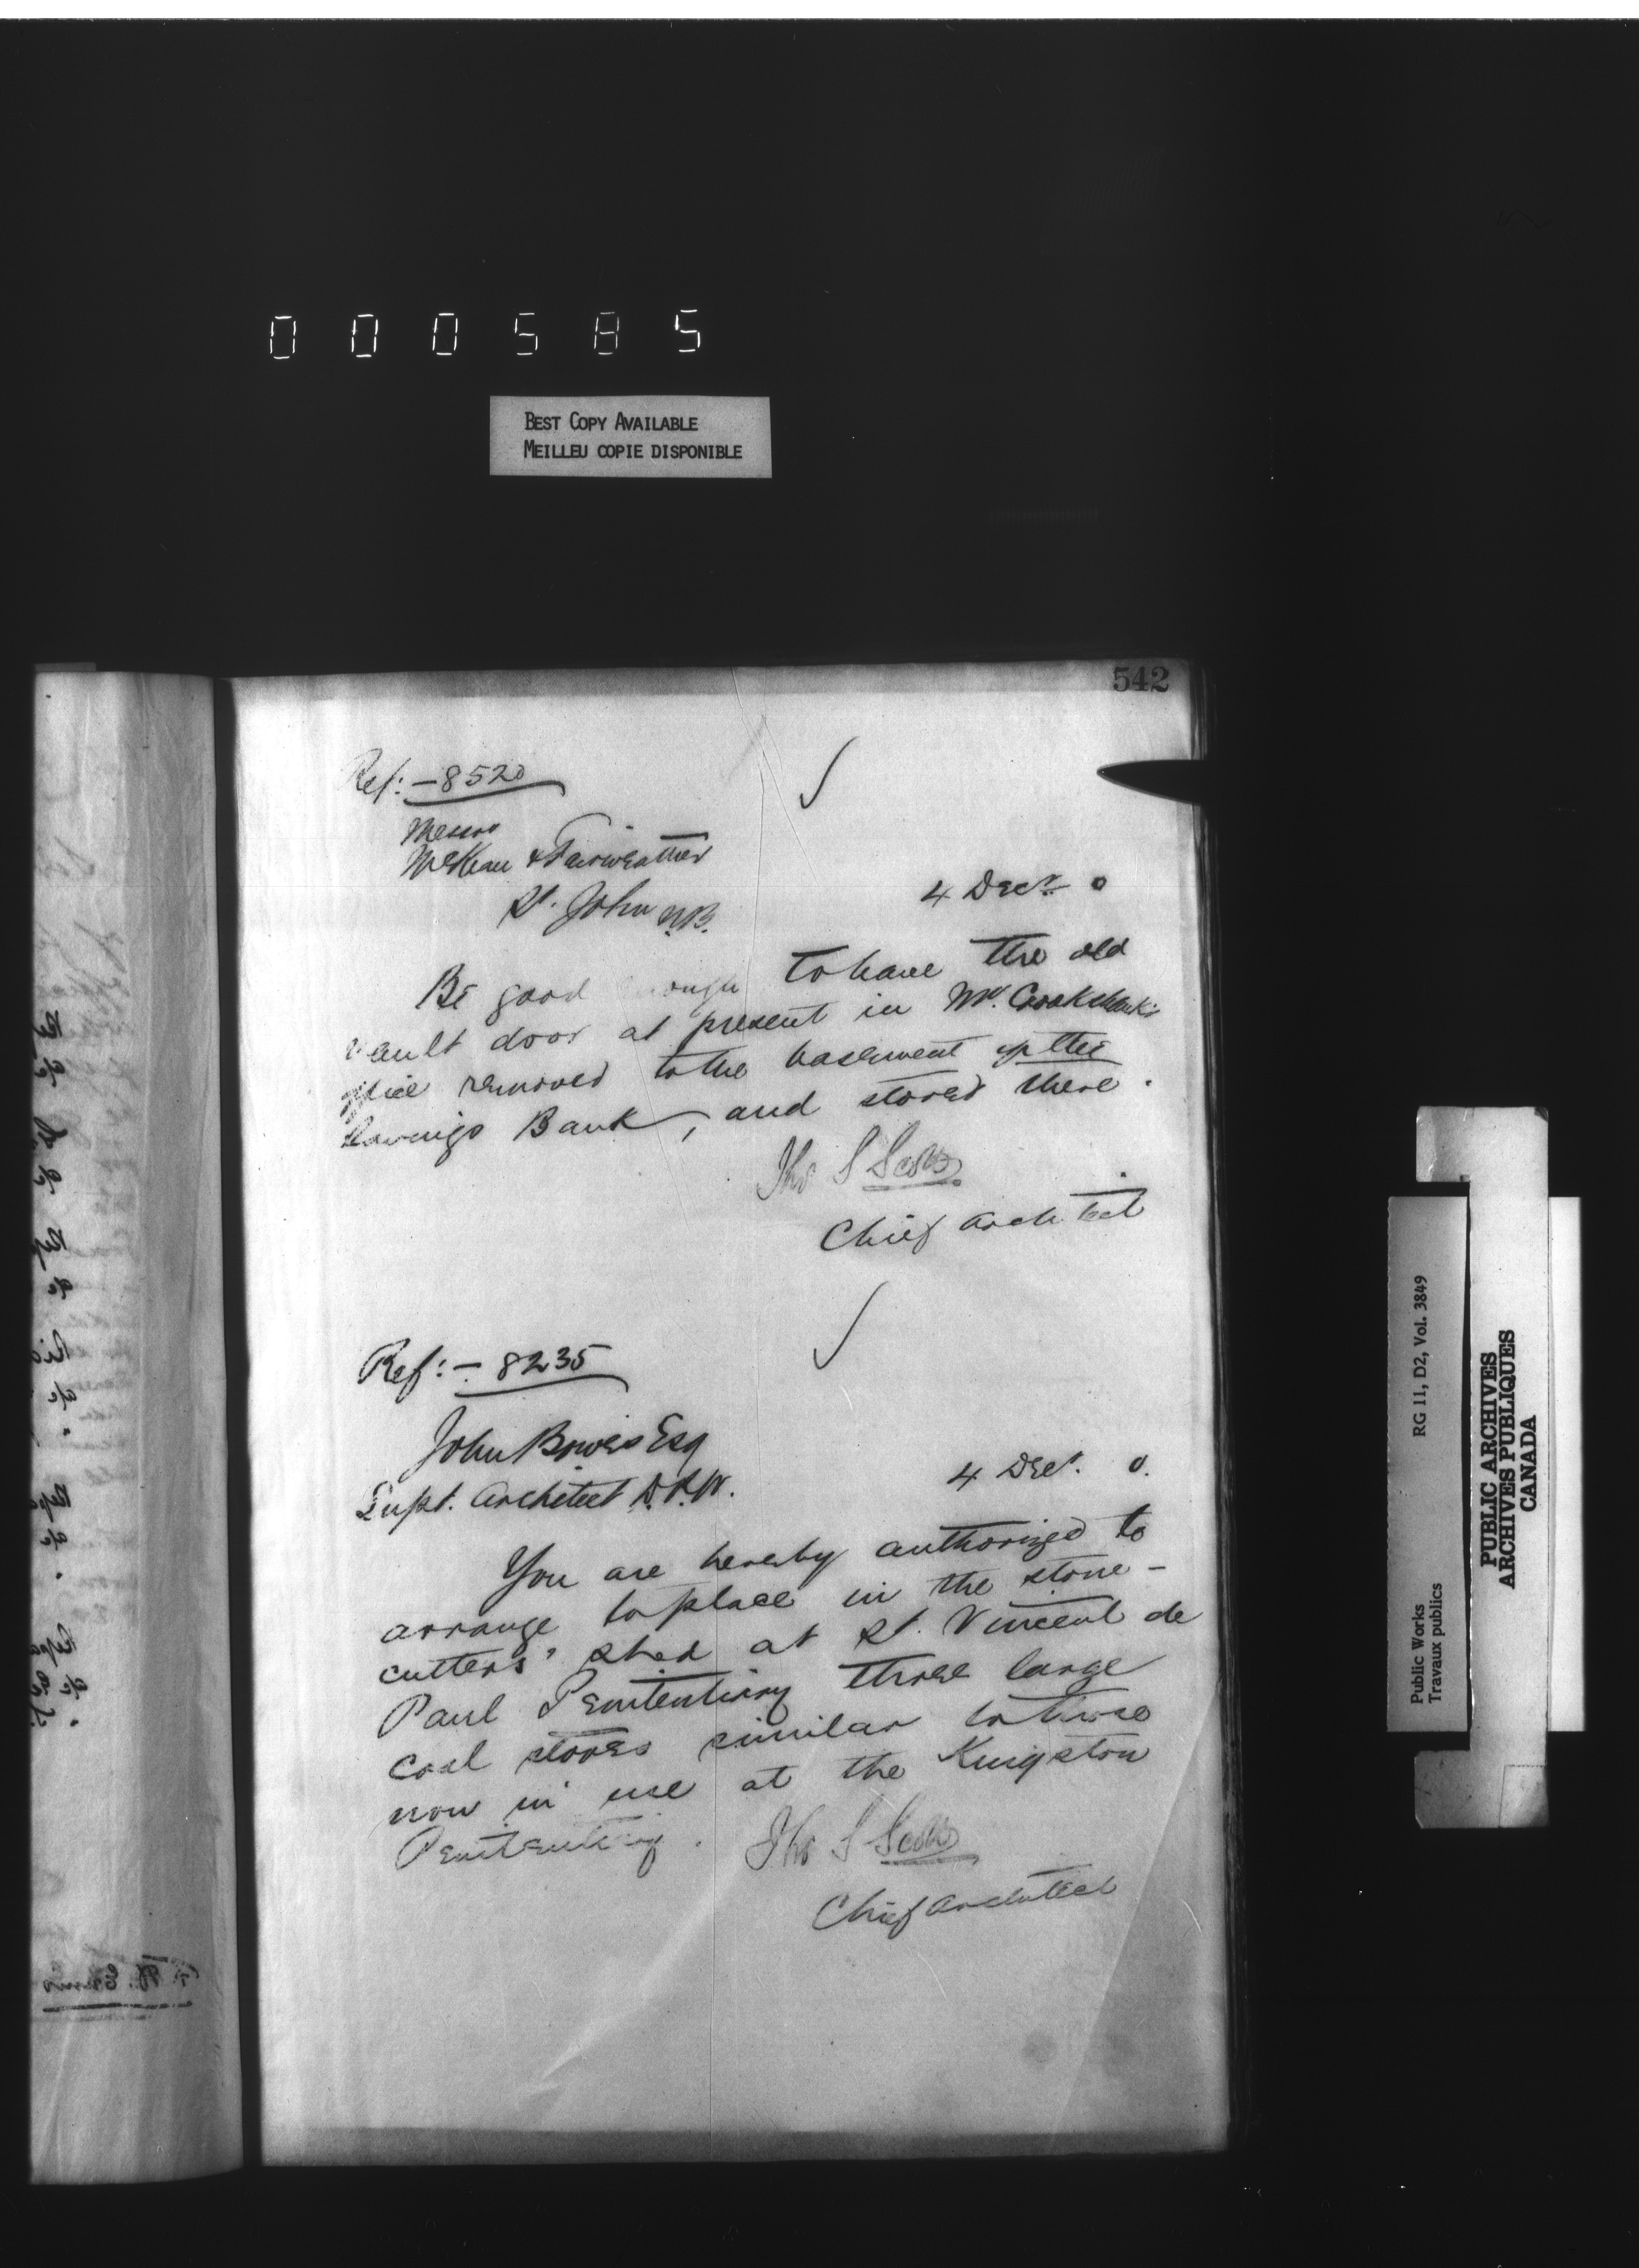 000585
BEST COPY AVAILABLE
MEILLEU COPIE DISPONIBLE
542
Ref:- 8520
Messrs
McKean & Fairweather
St. John N.B.
4 Decr. 0
Be good enough to have the old
vault door at present in Mr. Crookshank's
office removed to the basement of the
Savings Bank, and stored there.
Thos S Scott
Chief Architect
Ref:- 8235
John Bowes Esq
Supt. Architect D.P.W.
4 Decr. 0.
You are hereby authorized to
arrange to place in the stone-
cutters' shed at St. Vincent de
Paul Penitentiary three large
coal stoves similar to those
now in use at the Kingston
Penitentiary.
Thos S Scott
Chief Architect
Public Works
Travaux publics
RG 11, D2, Vol. 3849
PUBLIC ARCHIVES
ARCHIVES PUBLIQUES
CANADA